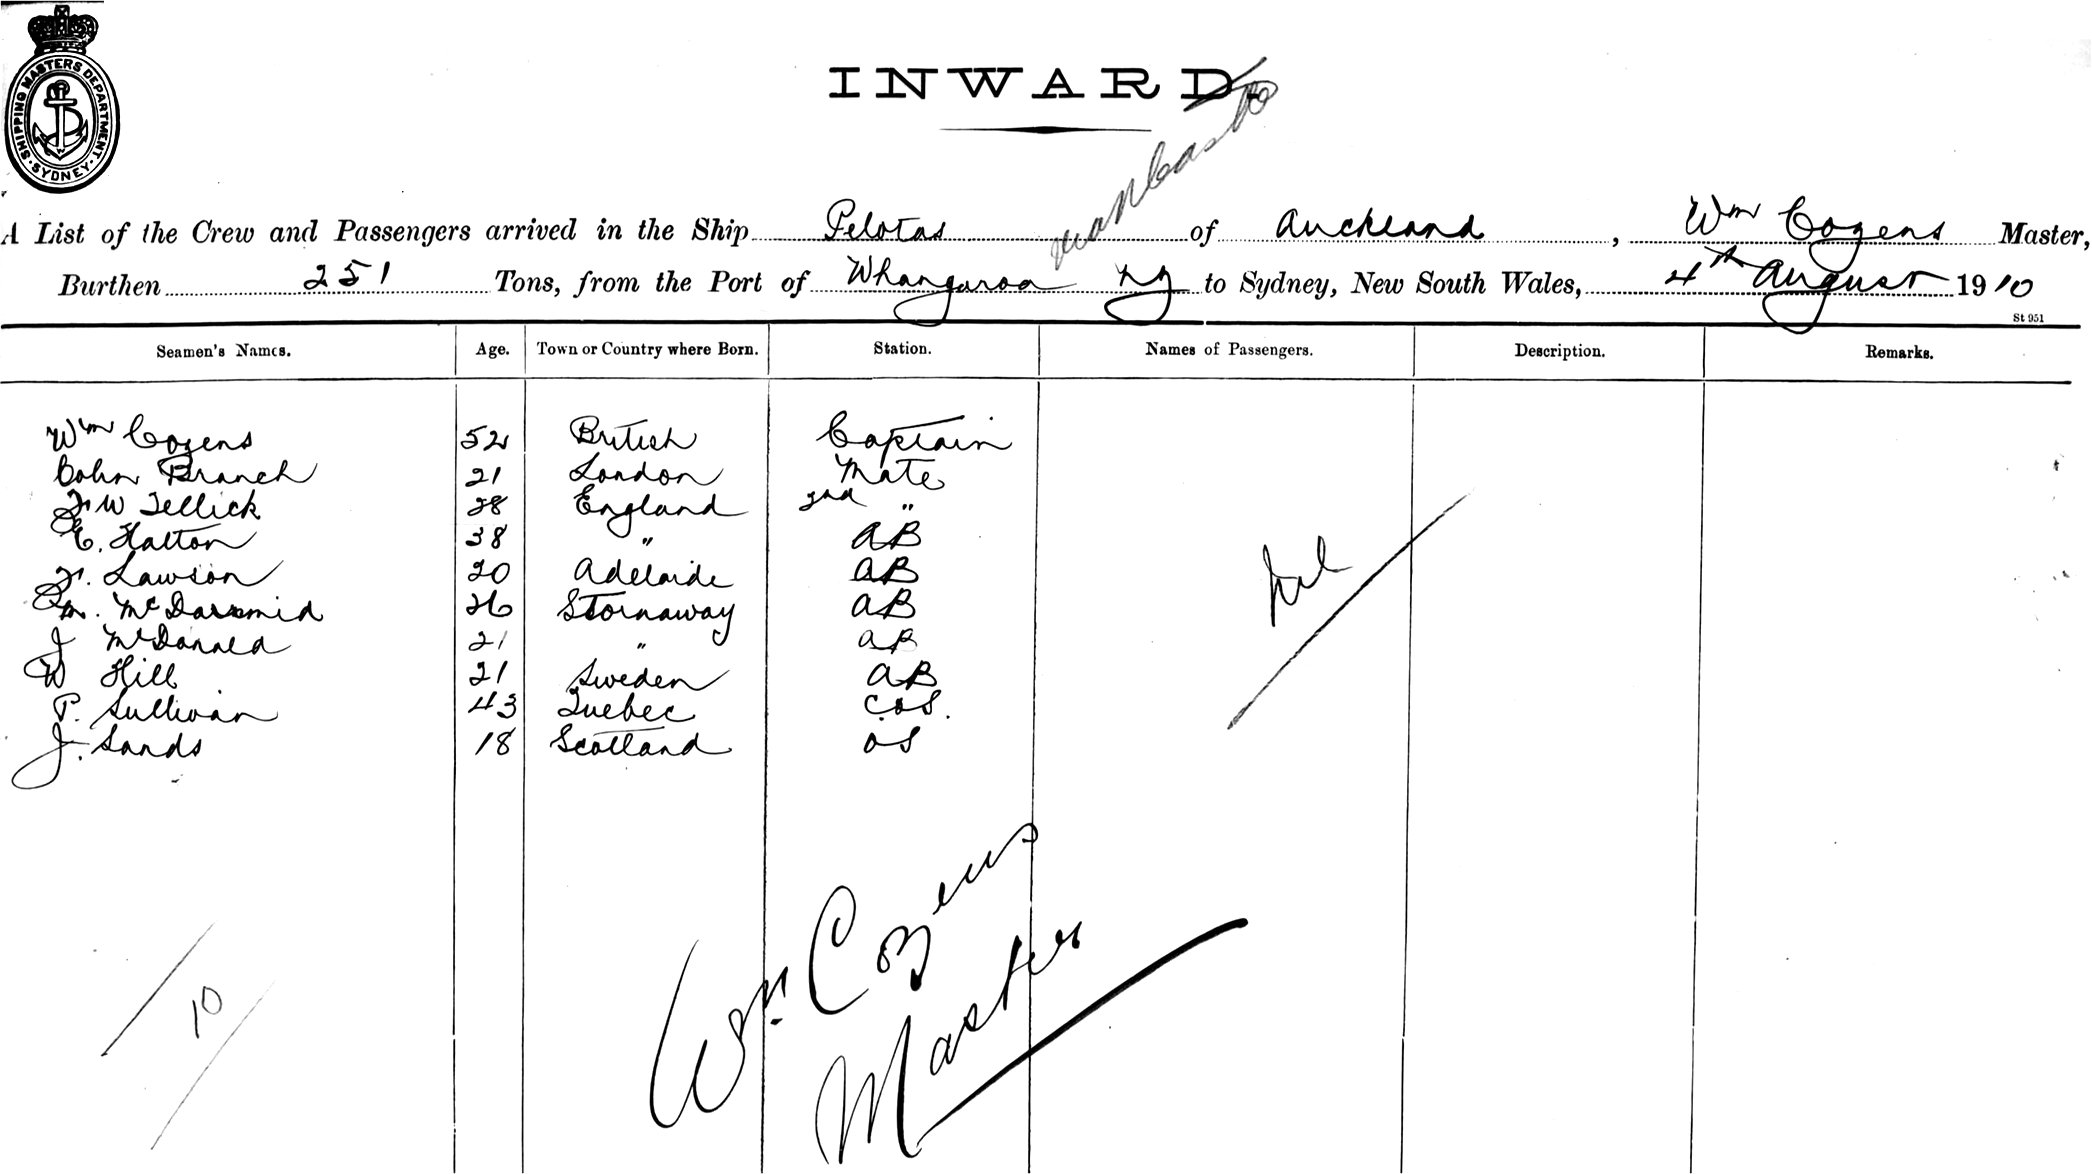 SHIPPING MASTERS DEPARTMENT
SYDNEY
INWARD.
A List of the Crew and Passengers arrived in the Ship Pelotas of Auckland, Wm Cozens Master,
Burthen 251 Tons, from the Port of Whangaroa NZ to Sydney, New South Wales, 4th August 1910
St 951
Seamen's Names. Age. Town or Country where Born. Station. Names of Passengers. Description. Remarks.
Wm Cozens 52 British Captain
Colin Branch 21 London Mate
F. W Tellick 28 England 2nd "
E. Hatton 38 " AB
F. Lawson 20 Adelaide AB
M. McDarmid 26 Stornaway AB
J McDonald 21 " AB
W Hill 21 Sweden AB
P. Sullivan 43 Quebec C.O.S.
J. Sands 18 Scotland OS
Nil
10
Wm Cozens
Master